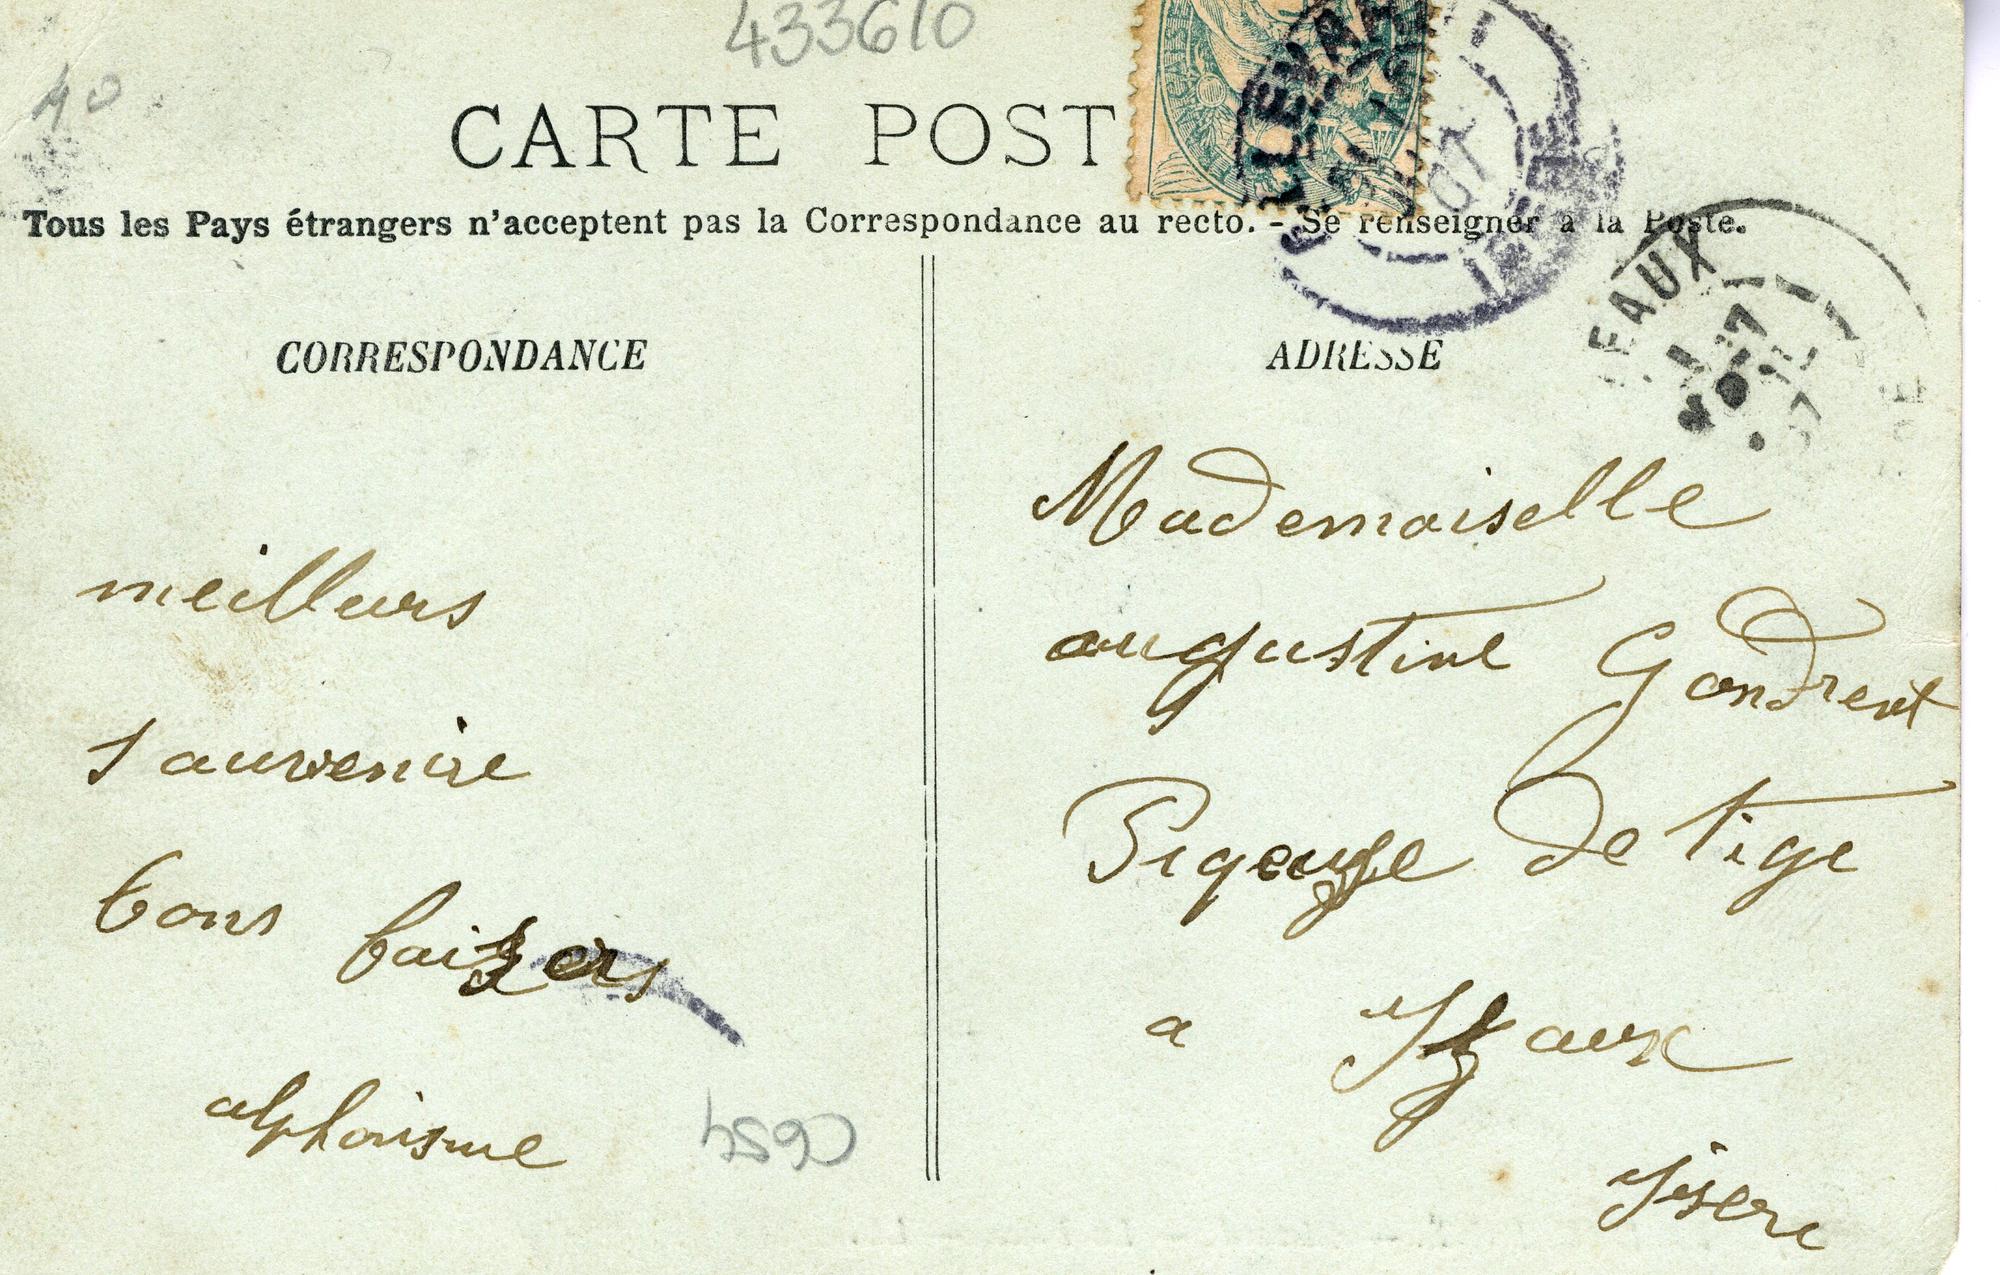 433610
40
CARTE POST
Tous les Pays étrangers n'acceptent pas la Correspondance au recto. - Se renseigner à la Poste.
EAUX
07
ISERE
CORRESPONDANCE
ADRESSE
meillurs
sauvenire
bons baizers
alphonsine
C654
Mademoiselle
augustine Gondrent
Piqeuse de tige
a Izeaux
Isere